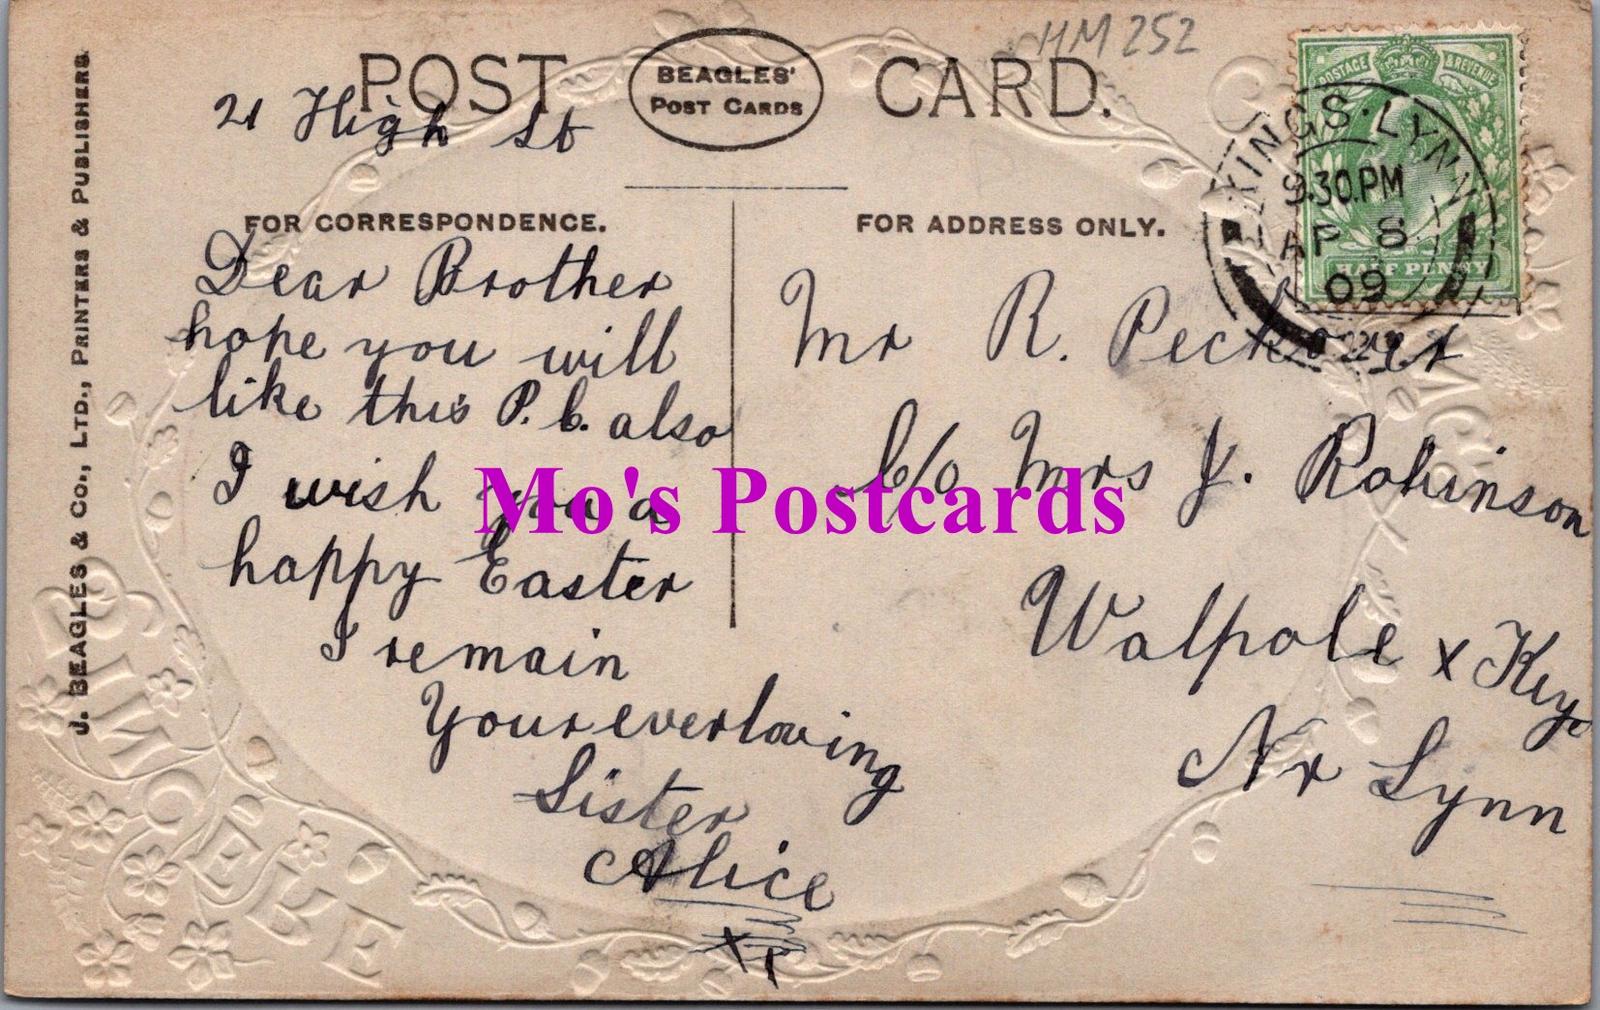 HM 252
POST CARD.
BEAGLES'
POST CARDS
21 High St
FOR CORRESPONDENCE.
Dear Brother
hope you will
like this P.C. also
I wish you a
happy Easter
I remain
Your ever loving
Sister
Alice
X
FOR ADDRESS ONLY.
Mr R. Peckover
C/o Mrs J. Robinson
Walpole x Keys
Nr Lynn
POSTAGE & REVENUE
HALF PENNY
KINGS·LYNN
9.30.PM
AP 8
09
J. BEAGLES & CO., LTD., PRINTERS & PUBLISHERS.
Mo's Postcards